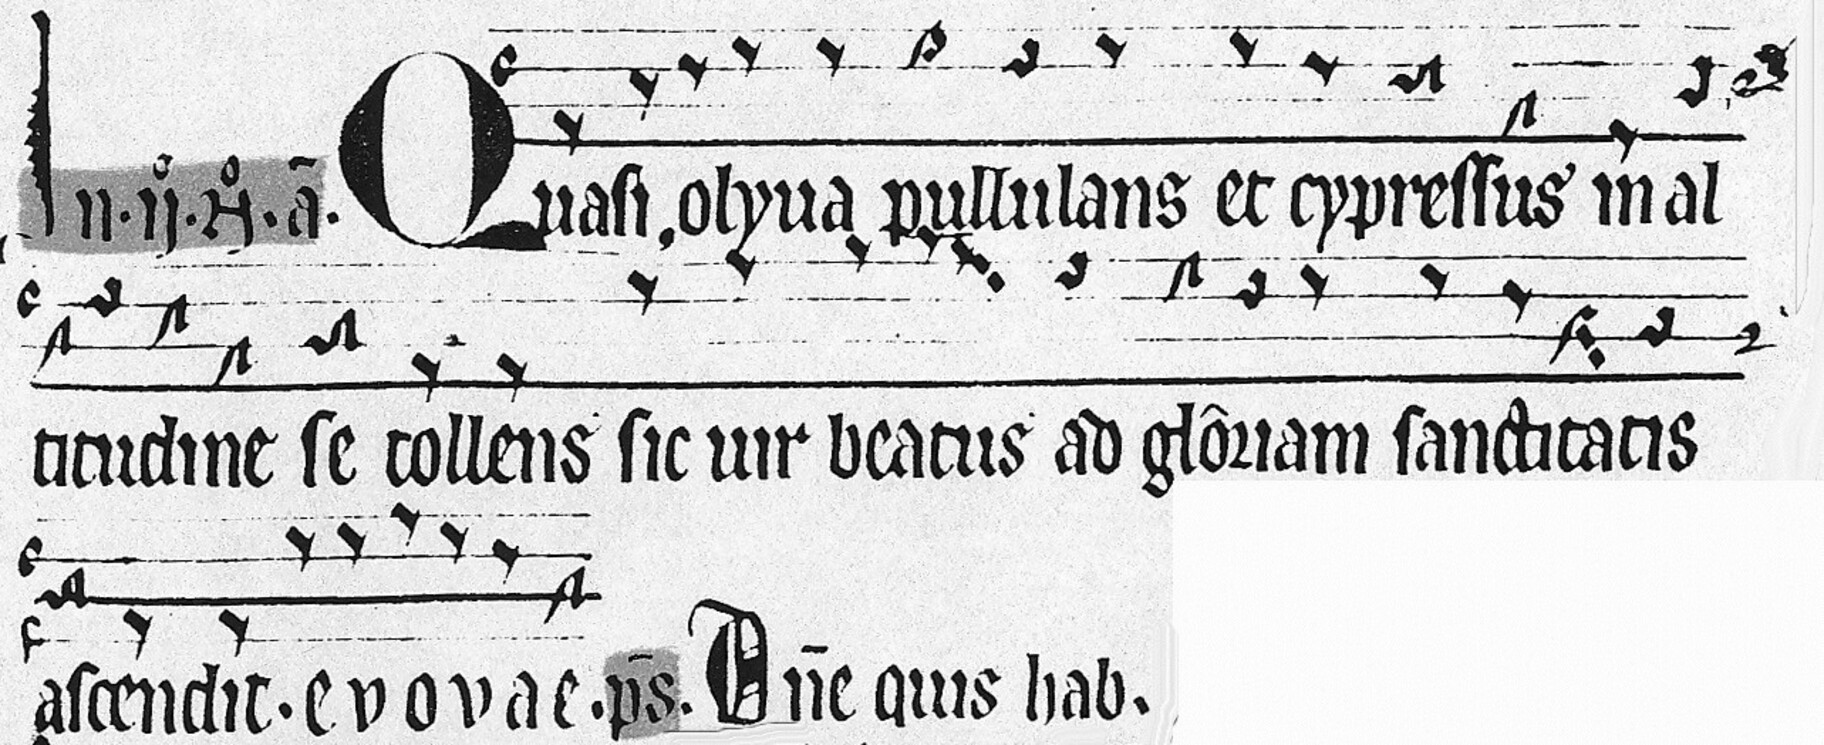 In .ij. N̊. ā. Quasi, olyua pullulans et cypressus in al
titudine se tollens sic uir beatus ad glôriam sanctitatis
ascendit. e v o v a e. p̄s. Dn̄e quis hab.